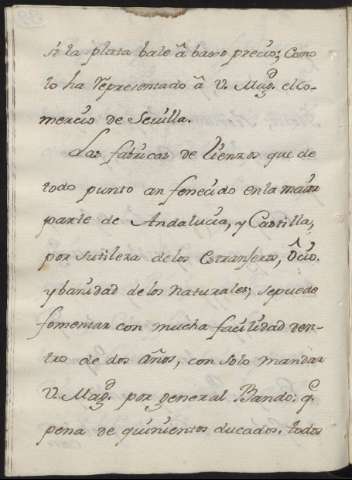 si la plata bale â baxo precio; Como
lo ha representado â V. Magd. el Co-
mercio de Sevilla.
Las fabricas de lienzos que de
todo punto an fenecido en la maior
parte de Andalucia, y Castilla,
por sutileza de los estranjeros, ôcio.
y banidad de los Naturales, se puede
fomentar con mucha facilidad den-
tro de dos años, con solo mandar
V. Magd. por general Bando: q.
pena de quinientos ducados, todos